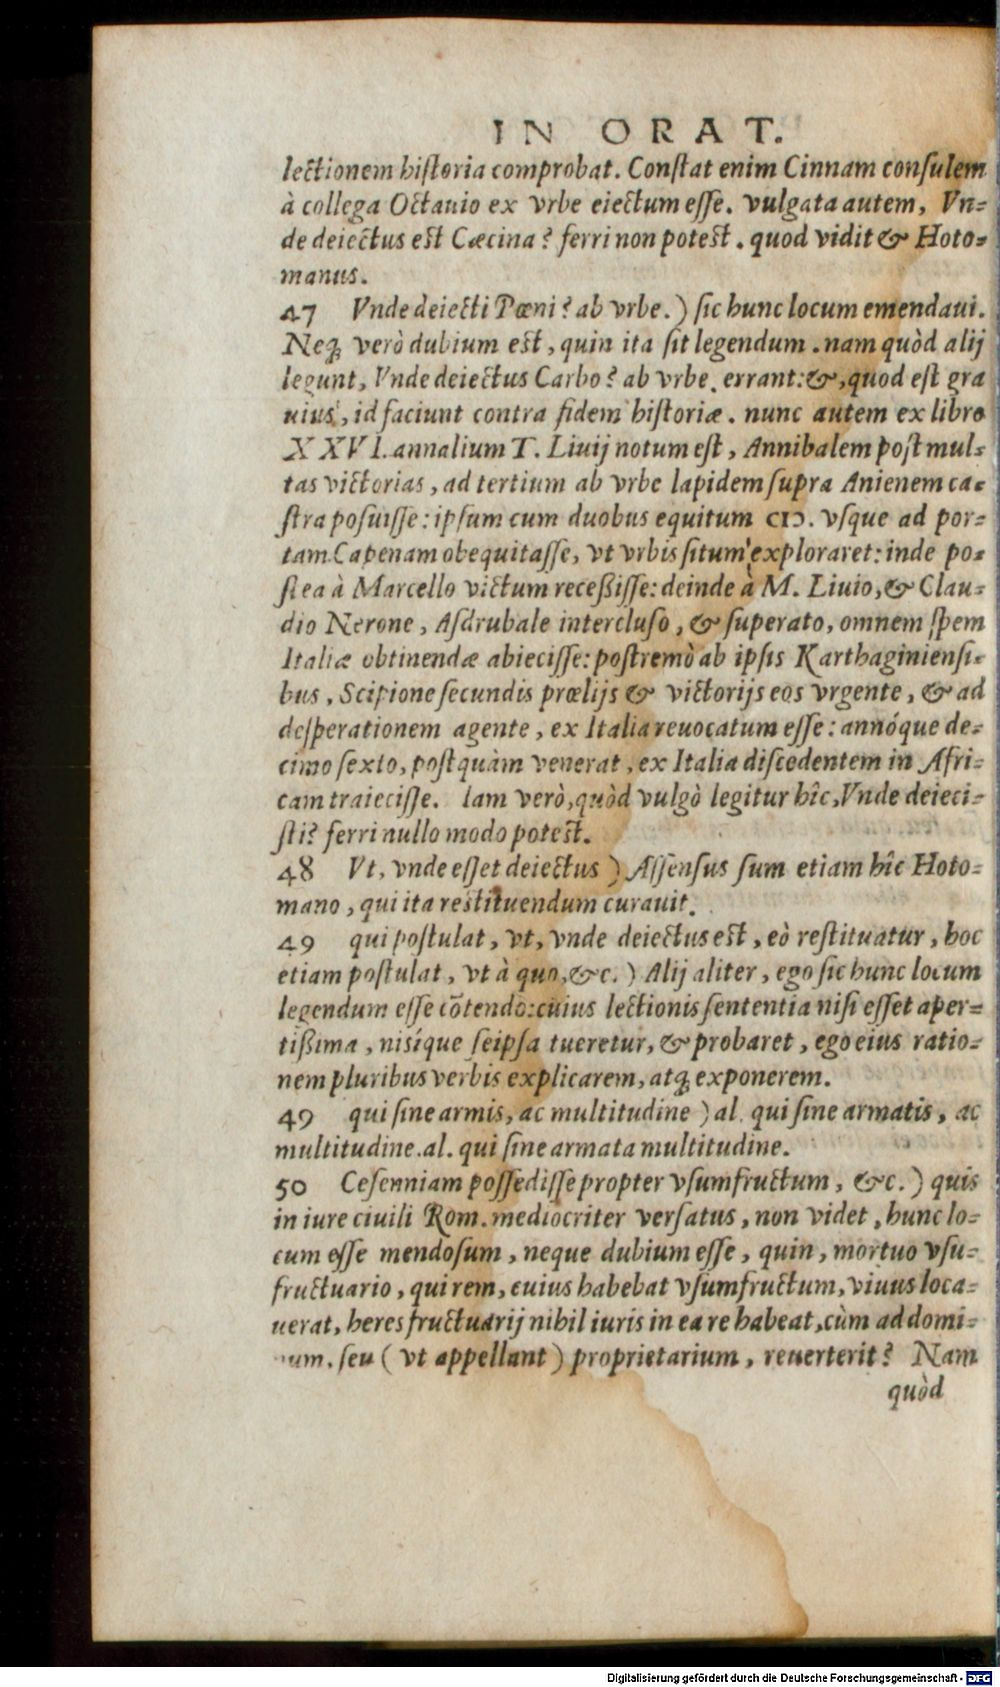 IN ORAT.
lectionem historia comprobat. Constat enim Cinnam consulem
à collega Octauio ex vrbe eiectum esse. vulgata autem, Vn-
de deiectus est Cæcina? ferri non potest. quod vidit & Hoto-
manus.
47 Vnde deiecti Pœni? ab vrbe.) sic hunc locum emendaui.
Neq; verò dubium est, quin ita sit legendum. nam quòd alij
legunt, Vnde deiectus Carbo? ab vrbe. errant: &, quod est gra
uius, id faciunt contra fidem historiæ. nunc autem ex libro
XXVI. annalium T. Liuij notum est, Annibalem post mul-
tas victorias, ad tertium ab vrbe lapidem supra Anienem ca-
stra posuisse: ipsum cum duobus equitum CIƆ. vsque ad por-
tam Capenam obequitasse, vt vrbis situm exploraret: inde po-
stea à Marcello victum receßisse: deinde à M. Liuio, & Clau-
dio Nerone, Asdrubale intercluso, & superato, omnem spem
Italiæ obtinendæ abiecisse: postremò ab ipsis Karthaginiensi-
bus, Scipione secundis prœlijs & victorijs eos vrgente, & ad
desperationem agente, ex Italia reuocatum esse: annóque de-
cimo sexto, postquàm venerat, ex Italia discedentem in Afri-
cam traiecisse. Iam verò, quòd vulgò legitur hîc, Vnde deieci-
sti? ferri nullo modo potest.
48 Vt, vnde esset deiectus) Assensus sum etiam hîc Hoto-
mano, qui ita restituendum curauit.
49 qui postulat, vt, vnde deiectus est, eò restituatur, hoc
etiam postulat, vt à quo, &c.) Alij aliter, ego sic hunc locum
legendum esse cōtendo: cuius lectionis sententia nisi esset aper-
tißima, nisíque seipsa tueretur, & probaret, ego eius ratio-
nem pluribus verbis explicarem, atq; exponerem.
49 qui sine armis, ac multitudine) al. qui sine armatis, ac
multitudine. al. qui sine armata multitudine.
50 Cesenniam possedisse propter vsumfructum, &c.) quis
in iure ciuili Rom. mediocriter versatus, non videt, hunc lo-
cum esse mendosum, neque dubium esse, quin, mortuo vsu-
fructuario, qui rem, cuius habebat vsumfructum, viuus loca-
uerat, heres fructuarij nihil iuris in ea re habeat, cùm ad domi-
num, seu (vt appellant) proprietarium, reuerterit? Nam
quòd
Digitalisierung gefördert durch die Deutsche Forschungsgemeinschaft - DFG